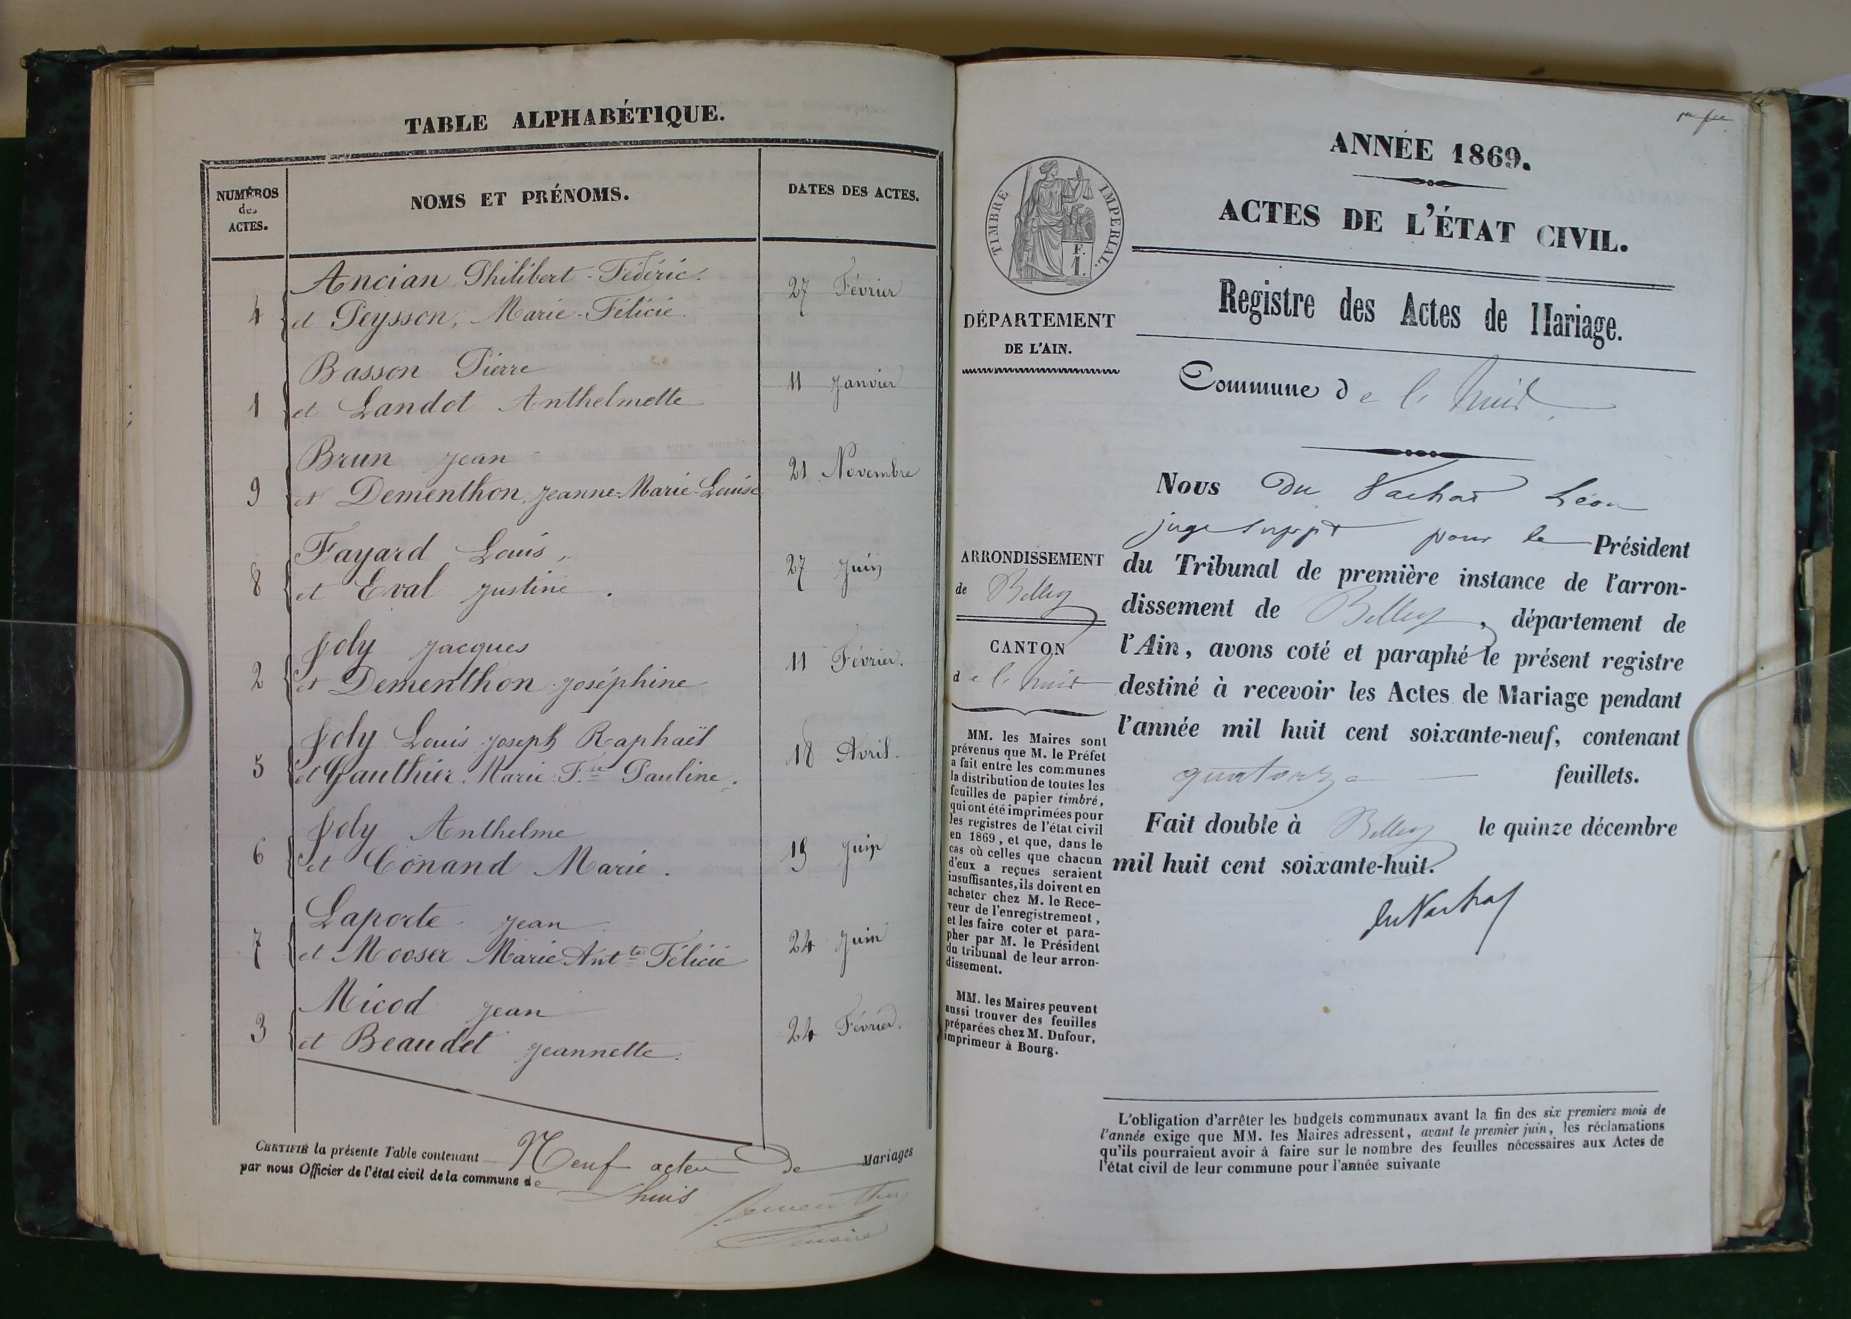 TABLE ALPHABÉTIQUE.
NUMÉROS
des
ACTES.
NOMS ET PRÉNOMS.
DATES DES ACTES.
Ancian Philibert-Fédéric.
4 et Peysson, Marie-Félicie. 27 Février
Basson Pierre
1 et Landot Anthelmette 11 Janvier
Brun Jean
9 et Dementhon Jeanne-Marie-Louise 21 Novembre
Fayard Louis,
8 et Eval Justine. 27 Juin
Joly Jacques
2 et Dementhon Joséphine 11 Février.
Joly Louis Joseph Raphaël
5 et Gauthier Marie Fse Pauline. 18 Avril.
Joly Anthelme
6 et Conand Marie. 19 Juin
Laporte Jean
7 et Mooser Marie Antte Félicie 24 Juin
Micod Jean
3 et Beaudet Jeannette. 24 Février.
CERTIFIÉ la présente Table contenant Neuf actes de Mariages
par nous Officier de l'état civil de la commune de Lhuis
ANNÉE 1869.
ACTES DE L'ÉTAT CIVIL.
Registre des Actes de Mariage.
TIMBRE IMPERIAL.
F.
1.
DÉPARTEMENT
DE L'AIN.
Commune de Lhuis
ARRONDISSEMENT
de Belley
CANTON
de Lhuis
MM. les Maires sont
prévenus que M. le Préfet
a fait entre les communes
la distribution de toutes les
feuilles de papier timbré,
qui ont été imprimées pour
les registres de l'état civil
en 1869, et que, dans le
cas où celles que chacun
d'eux a reçues seraient
insuffisantes, ils doivent en
acheter chez M. le Rece-
veur de l'enregistrement,
et les faire coter et para-
pher par M. le Président
du tribunal de leur arron-
dissement.
MM. les Maires peuvent
aussi trouver des feuilles
préparées chez M. Dufour,
imprimeur à Bourg.
Nous Du Vachat Léon
juge suppt pour le Président
du Tribunal de première instance de l'arron-
dissement de Belley, département de
l'Ain, avons coté et paraphé le présent registre
destiné à recevoir les Actes de Mariage pendant
l'année mil huit cent soixante-neuf, contenant
quatorze feuillets.
Fait double à Belley le quinze décembre
mil huit cent soixante-huit.
du Vachat
L'obligation d'arrêter les budgets communaux avant la fin des six premiers mois de
l'année exige que MM. les Maires adressent, avant le premier juin, les réclamations
qu'ils pourraient avoir à faire sur le nombre des feuilles nécessaires aux Actes de
l'état civil de leur commune pour l'année suivante